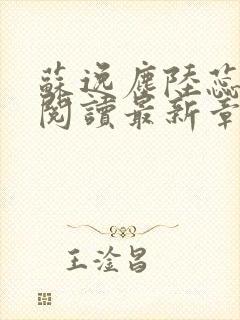 蘇逸塵陸蕊
閱讀最新章
王淦昌